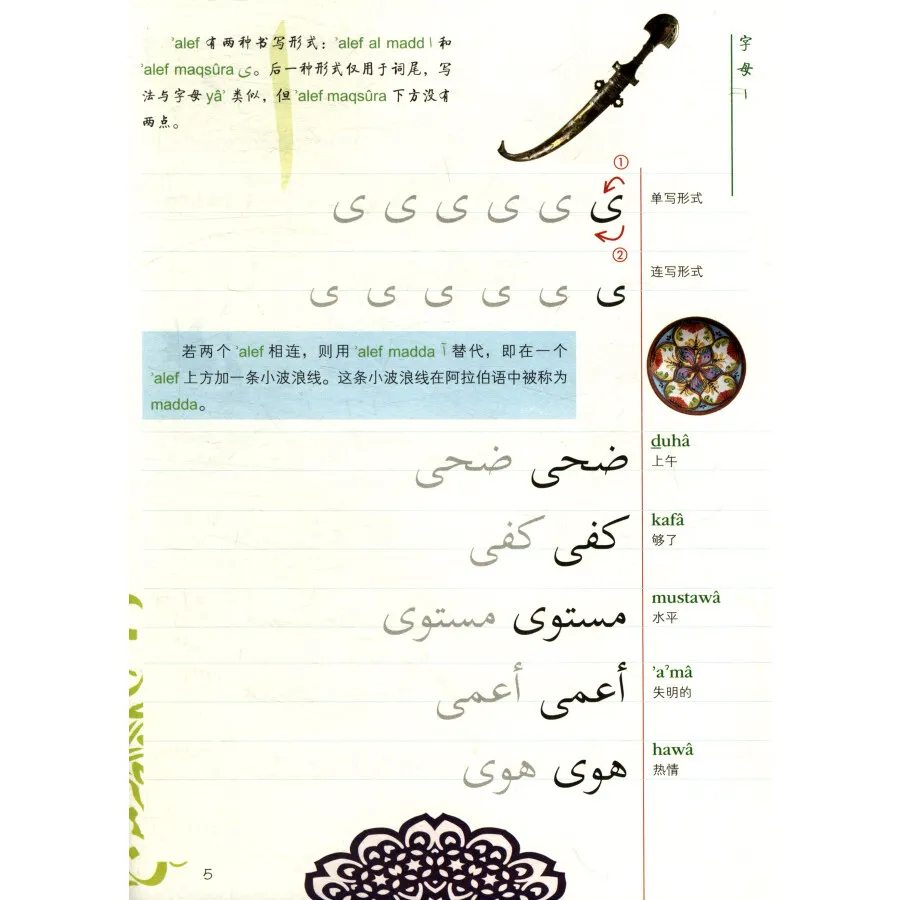 ʾalef 有两种书写形式：ʾalef al madd ا 和
ʾalef maqsûra ى。后一种形式仅用于词尾，写
法与字母 yâʾ 类似，但 ʾalef maqsûra 下方没有
两点。
字母 ا
①
ى ى ى ى ى ى
单写形式
②
ى ى ى ى ى ى
连写形式
若两个 ʾalef 相连，则用 ʾalef madda آ 替代，即在一个
ʾalef 上方加一条小波浪线。这条小波浪线在阿拉伯语中被称为
madda。
ضحى ضحى
duhâ
上午
كفى كفى
kafâ
够了
مستوى مستوى
mustawâ
水平
أعمى أعمى
ʾaʿmâ
失明的
هوى هوى
hawâ
热情
5